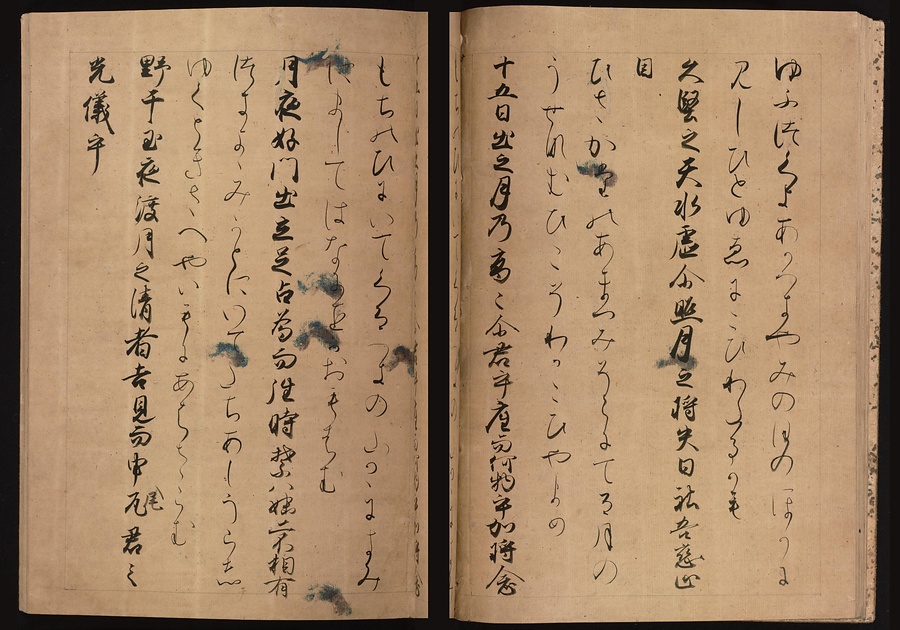 ゆふつくよあかつきやみのほのほかに
みしひとゆゑにこひわたるかも
久堅之天水虚尓照月之将失日社吾戀止
目
ひさかたのあまつみそらにてる月の
うせなむひこそわかこひやまめ
十五日出之月乃高々尓君乎座而何物乎加将念
もちのひにいてくるつきのたかたかにきみ
いましてはなにをかおもはむ
月夜好門出立足占為而徃時禁八妹二不相有
つきよよみかとにいてたちあしうらし
ゆくときさへやいもにあはさらむ
野干玉夜渡月之清者吉見而申尾君之
光儀乎